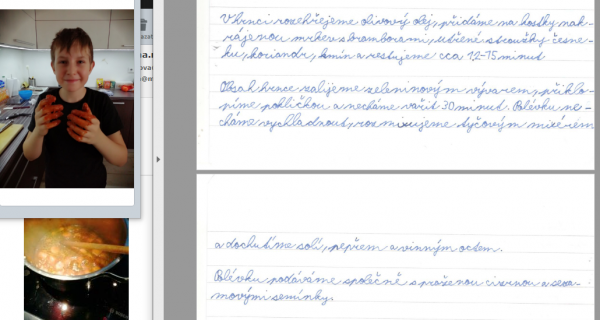 V hrnci rozehřejeme olivový olej, přidáme na kostky nak-
rájenou mrkev s bramborami, utřené stroužky česne-
ku, koriandr, kmín a restujeme cca 12-15 minut.
Obsah hrnce zalijeme zeleninovým vývarem, přiklo-
píme pokličkou a necháme vařit 30 minut. Polévku ne-
cháme vychladnout, rozmixujeme tyčovým mixérem
a dochutíme solí, pepřem a vinným octem.
Polévku podáváme společně s praženou cizrnou a seza-
movými semínky.